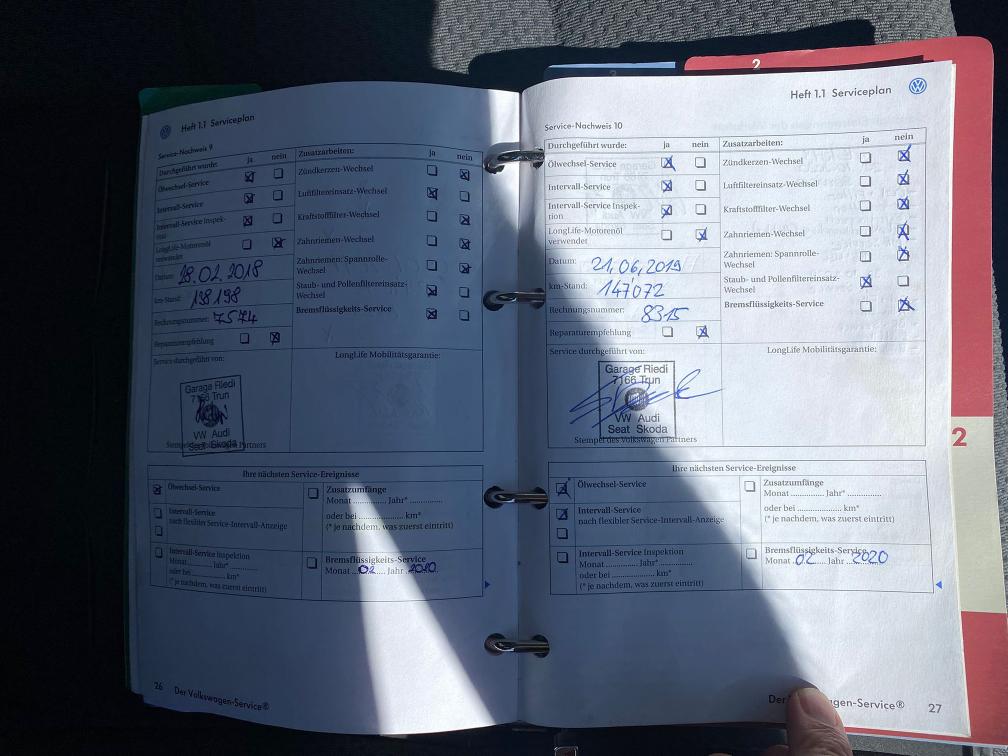 Heft 1.1 Serviceplan
Service-Nachweis 9
Durchgeführt wurde: ja nein
Ölwechsel-Service
Intervall-Service
Intervall-Service Inspek-
tion
LongLife-Motorenöl
verwendet
Datum: 28.02.2018
km-Stand: 138198
Rechnungsnummer: 7574
Reparaturempfehlung
Zusatzarbeiten: ja nein
Zündkerzen-Wechsel
Luftfiltereinsatz-Wechsel
Kraftstofffilter-Wechsel
Zahnriemen-Wechsel
Zahnriemen: Spannrolle-
Wechsel
Staub- und Pollenfiltereinsatz-
Wechsel
Bremsflüssigkeits-Service
Service durchgeführt von:
LongLife Mobilitätsgarantie:
Garage Riedi
7166 Trun
VW Audi
Seat Skoda
Stempel des Volkswagen Partners
Ihre nächsten Service-Ereignisse
Ölwechsel-Service
Intervall-Service
nach flexibler Service-Intervall-Anzeige
Intervall-Service Inspektion
Monat ........ Jahr* ........
oder bei ........ km*
(* je nachdem, was zuerst eintritt)
Zusatzumfänge
Monat ........ Jahr* ........
oder bei ........ km*
(* je nachdem, was zuerst eintritt)
Bremsflüssigkeits-Service
Monat 02 Jahr 2020
26 Der Volkswagen-Service®
2
Heft 1.1 Serviceplan
Service-Nachweis 10
Durchgeführt wurde: ja nein
Ölwechsel-Service
Intervall-Service
Intervall-Service Inspek-
tion
LongLife-Motorenöl
verwendet
Datum: 21.06.2019
km-Stand: 147072
Rechnungsnummer: 8315
Reparaturempfehlung
Zusatzarbeiten: ja nein
Zündkerzen-Wechsel
Luftfiltereinsatz-Wechsel
Kraftstofffilter-Wechsel
Zahnriemen-Wechsel
Zahnriemen: Spannrolle-
Wechsel
Staub- und Pollenfiltereinsatz-
Wechsel
Bremsflüssigkeits-Service
Service durchgeführt von:
LongLife Mobilitätsgarantie:
Garage Riedi
7166 Trun
VW Audi
Seat Skoda
Stempel des Volkswagen Partners
Ihre nächsten Service-Ereignisse
Ölwechsel-Service
Intervall-Service
nach flexibler Service-Intervall-Anzeige
Intervall-Service Inspektion
Monat ........ Jahr* ........
oder bei ........ km*
(* je nachdem, was zuerst eintritt)
Zusatzumfänge
Monat ........ Jahr* ........
oder bei ........ km*
(* je nachdem, was zuerst eintritt)
Bremsflüssigkeits-Service
Monat 02 Jahr 2020
2
gen-Service® 27